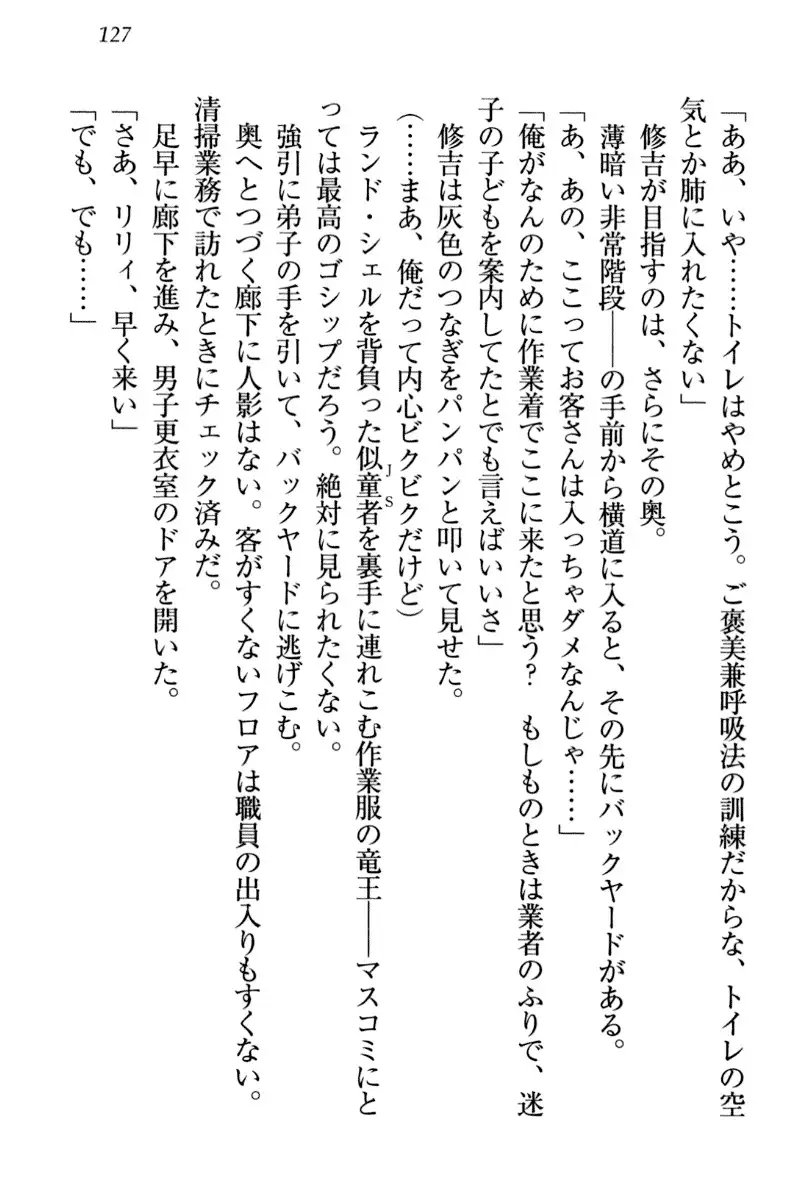 127
「ああ、いや……トイレはやめとこう。ご褒美兼呼吸法の訓練だからな、トイレの空
気とか肺に入れたくない」
　修吉が目指すのは、さらにその奥。
　薄暗い非常階段――の手前から横道に入ると、その先にバックヤードがある。
「あ、あの、ここってお客さんは入っちゃダメなんじゃ……」
「俺がなんのために作業着でここに来たと思う？　もしものときは業者のふりで、迷
子の子どもを案内してたとでも言えばいいさ」
　修吉は灰色のつなぎをパンパンと叩いて見せた。
(……まあ、俺だって内心ビクビクだけど)
　ランド・シェルを背負った似童者を裏手に連れこむ作業服の竜王――マスコミにと
JS
っては最高のゴシップだろう。絶対に見られたくない。
　強引に弟子の手を引いて、バックヤードに逃げこむ。
　奥へとつづく廊下に人影はない。客がすくないフロアは職員の出入りもすくない。
清掃業務で訪れたときにチェック済みだ。
　足早に廊下を進み、男子更衣室のドアを開いた。
「さあ、リリィ、早く来い」
「でも、でも……」